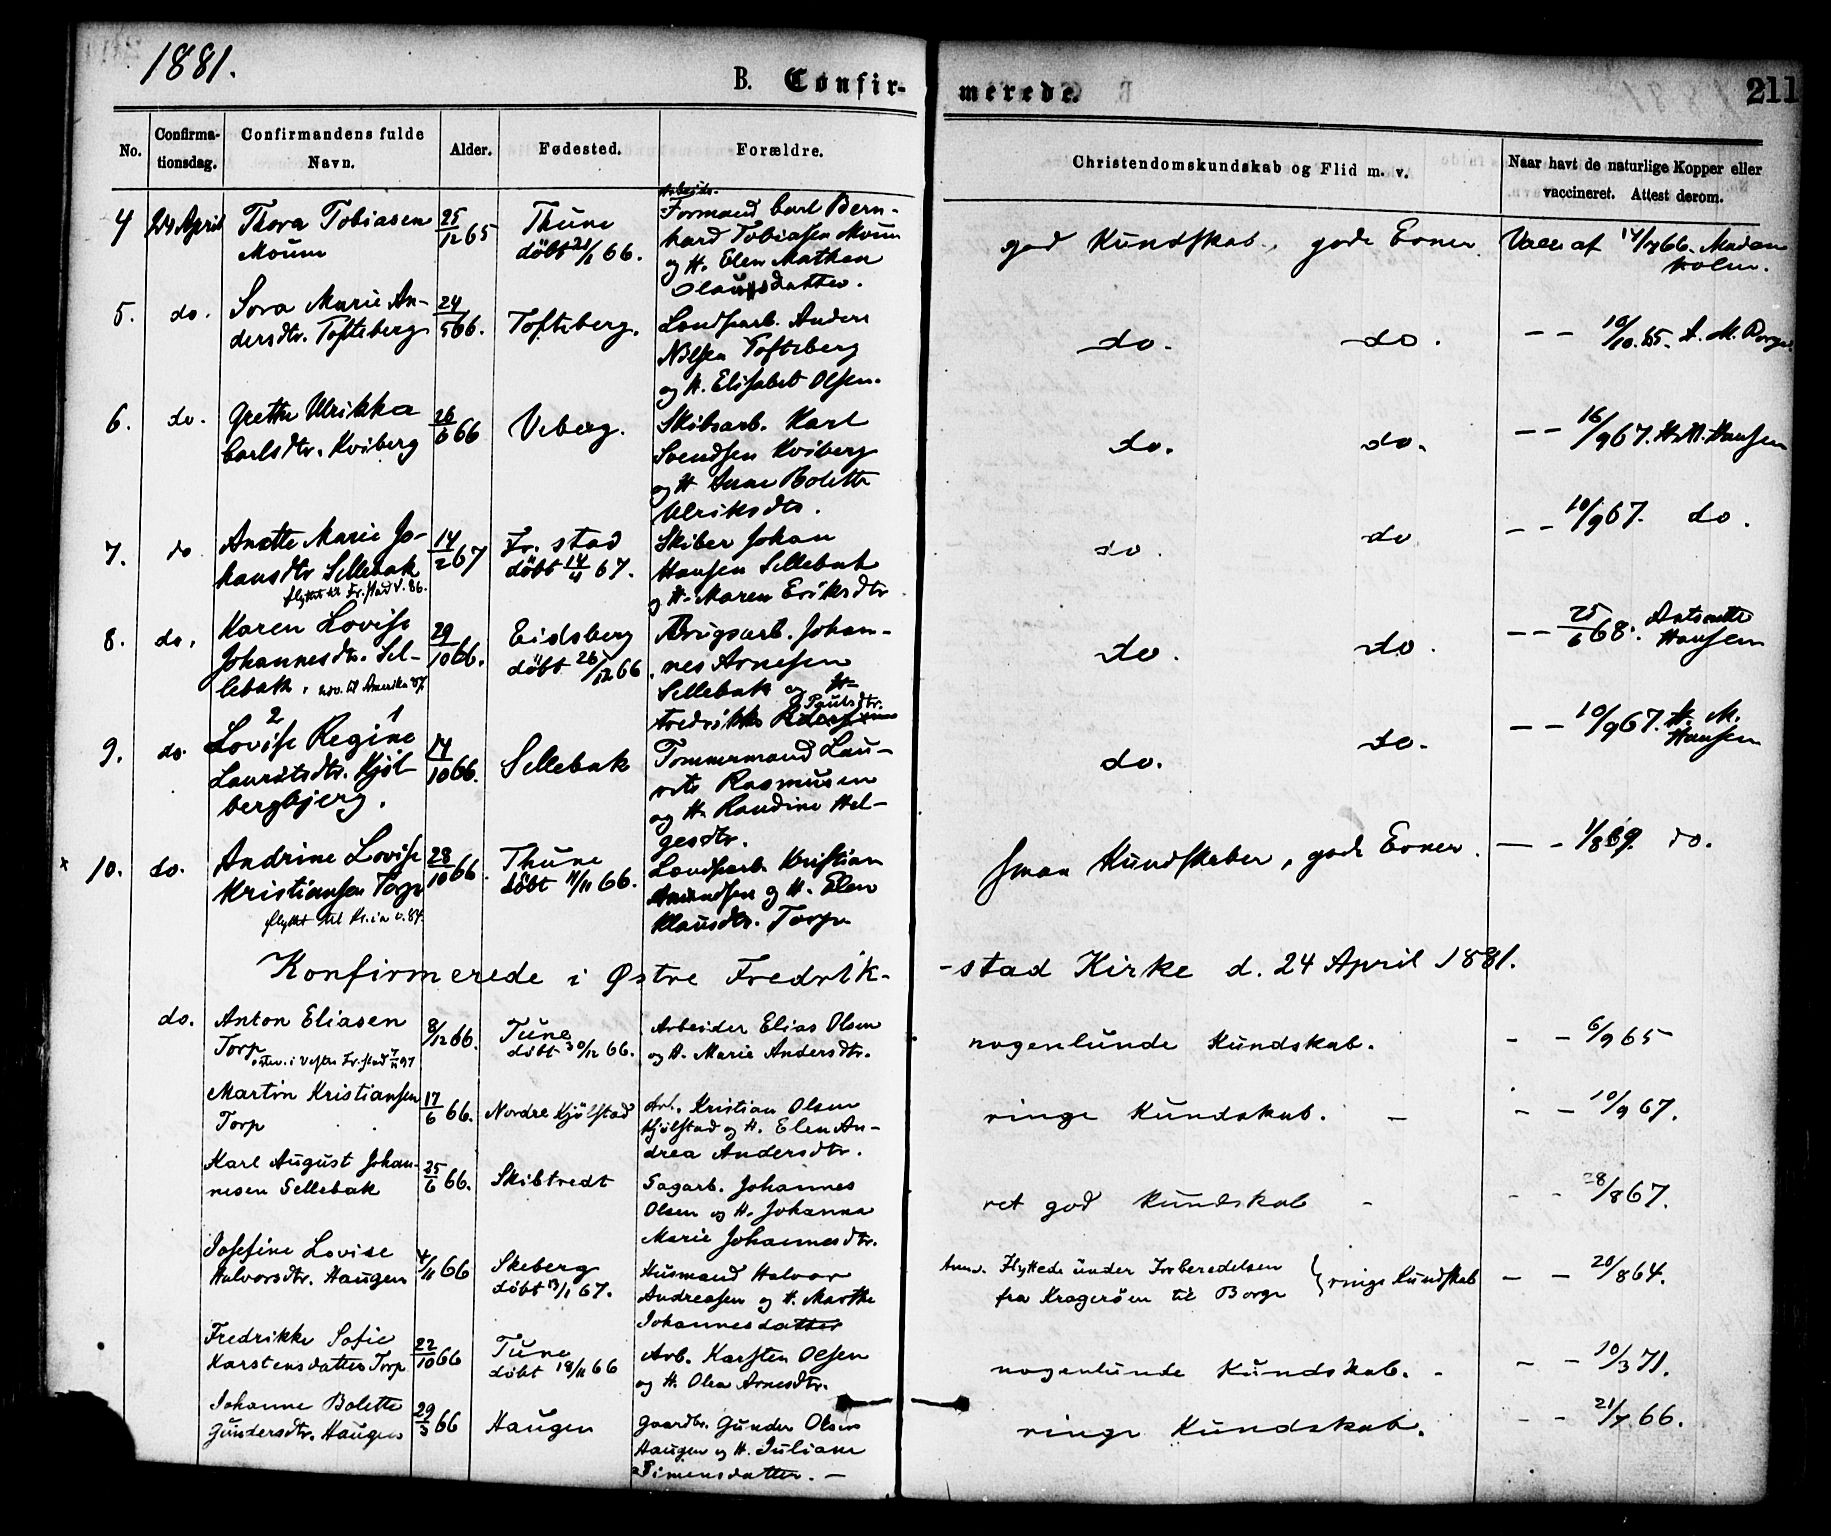 1881.
B. Confir-
merede.
211
No.
Confirma-
tionsdag.
Confirmandens fulde
Navn.
Alder.
Fødested.
Forældre.
Christendomskundskab og Flid m. v.
Naar havt de naturlige Kopper eller
vaccineret. Attest derom.
4 24 April Thora Tobiasen
Moum
25/12 65
Thune
döbt 21/1 66.
Arbeids-
Formand Carl Bern-
hard Tobiasen Moum
og H. Elen Mathea
Olausdatter.
god Kundskab, gode Evner
Vacc. af 66. Madam
Holm.
5. do. Sora Marie An-
dersdtr. Tofteberg
24/5 66.
Tofteberg.
Landsarb. Anders
Nilsen Tofteberg
og H. Elisabet Olsen.
do. do.
- - 10/10. 65.
6. do. Grethe Ulrikka
Carlsdtr. Kviberg
26/6 66
Veberg.
Skibsarb. Karl
Svendsen Kviberg
og H Anne Bolette
Ulriksdtr.
do. do.
- - 16/9 67. H. M. Hansen
7. do Anette Marie Jo-
hansdtr Sellebak
flyttet til Fr.stad v. 86.
14/2 67
Fr. stad
döbt 14/4 67.
Skiber Johan
Hansen Sellebak
og H. Maren Eriksdtr
do. do
- - 10/9 67. do.
8. do. Karen Lovise
Johannesdtr. Sel-
lebak. udv. til Amerika 87
29/10 66.
Eidsberg
döbt 26/12 66
Brugsarb. Johan-
nes Arnesen
Sellebak og H-
Fredrikke Paulsdtr.
do. do.
- - 25/6 68. Antonette
Hansen
9. do. Lovise Regine
2 1
Lauritsdtr. Kjöl-
bergbjerg.
14/10 66.
Sellebak
Tømmermand Lau-
rits Rasmusen
og H. Randine Hel-
gesdtr.
do. do.
- - 10/9 67. H. M.
Hansen
x 10. do. Andrine Lovise
Kristiansen Torp
flyttet til Kr.ia v. 84.
28/10 66.
Thune
döbt 11/11 66.
Landsarb. Kristian
Amundsen og H. Elen
Klausdtr. Torp
smaa Kundskaber, gode Evner.
- - 1/8 69. do.
Konfirmerede i Østre Fredrik-
-stad Kirke d. 24 April 1881.
do. Anton Eliasen
Torp
8/12 66.
Tune
döbt 30/12 66.
Arbeider Elias Olsen
og H. Marie Andersdtr.
nogenlunde Kundskab.
- - 6/9 65
Martin Kristiansen
Torp
17/6 66.
Nordre Kjölstad
Arb. Kristian Olsen
Kjølstad og H. Elen An-
drea Andersdtr.
ringe Kundskab. -
- - 10/9 67.
Karl August Johan-
nesen Sellebak
25/6 66.
Skibtvedt
Sagarb. Johannes
Olsen og H. Johanna
Marie Johannesdtr.
ret god Kundskab -
- - 28/8 67.
Josefine Lovise
Halvorsdtr. Haugen
4/11 66
Skeberg
döbt 13/1 67.
Husmand Halvor
Andreasen og H. Marthe
Johannesdatter
Anm. Flyttede under Forberedelsen
fra Kragerøen til Borge } ringe Kundskab
- - 20/8 64.
Fredrikke Sofie
Karstensdatter Torp
22/10 66
Tune
döbt 18/11 66
Arb. Karsten Olsen
og H. Olea Arnesdtr.
nogenlunde Kundskab. -
- - 10/3 71.
Johanne Bolette
Gundersdtr. Haugen
29/3 66
Haugen
Gaardbr. Gunder Olsen
Haugen og H. Juliane
Simensdatter. -
ringe Kundskab.
- - 21/7 66.